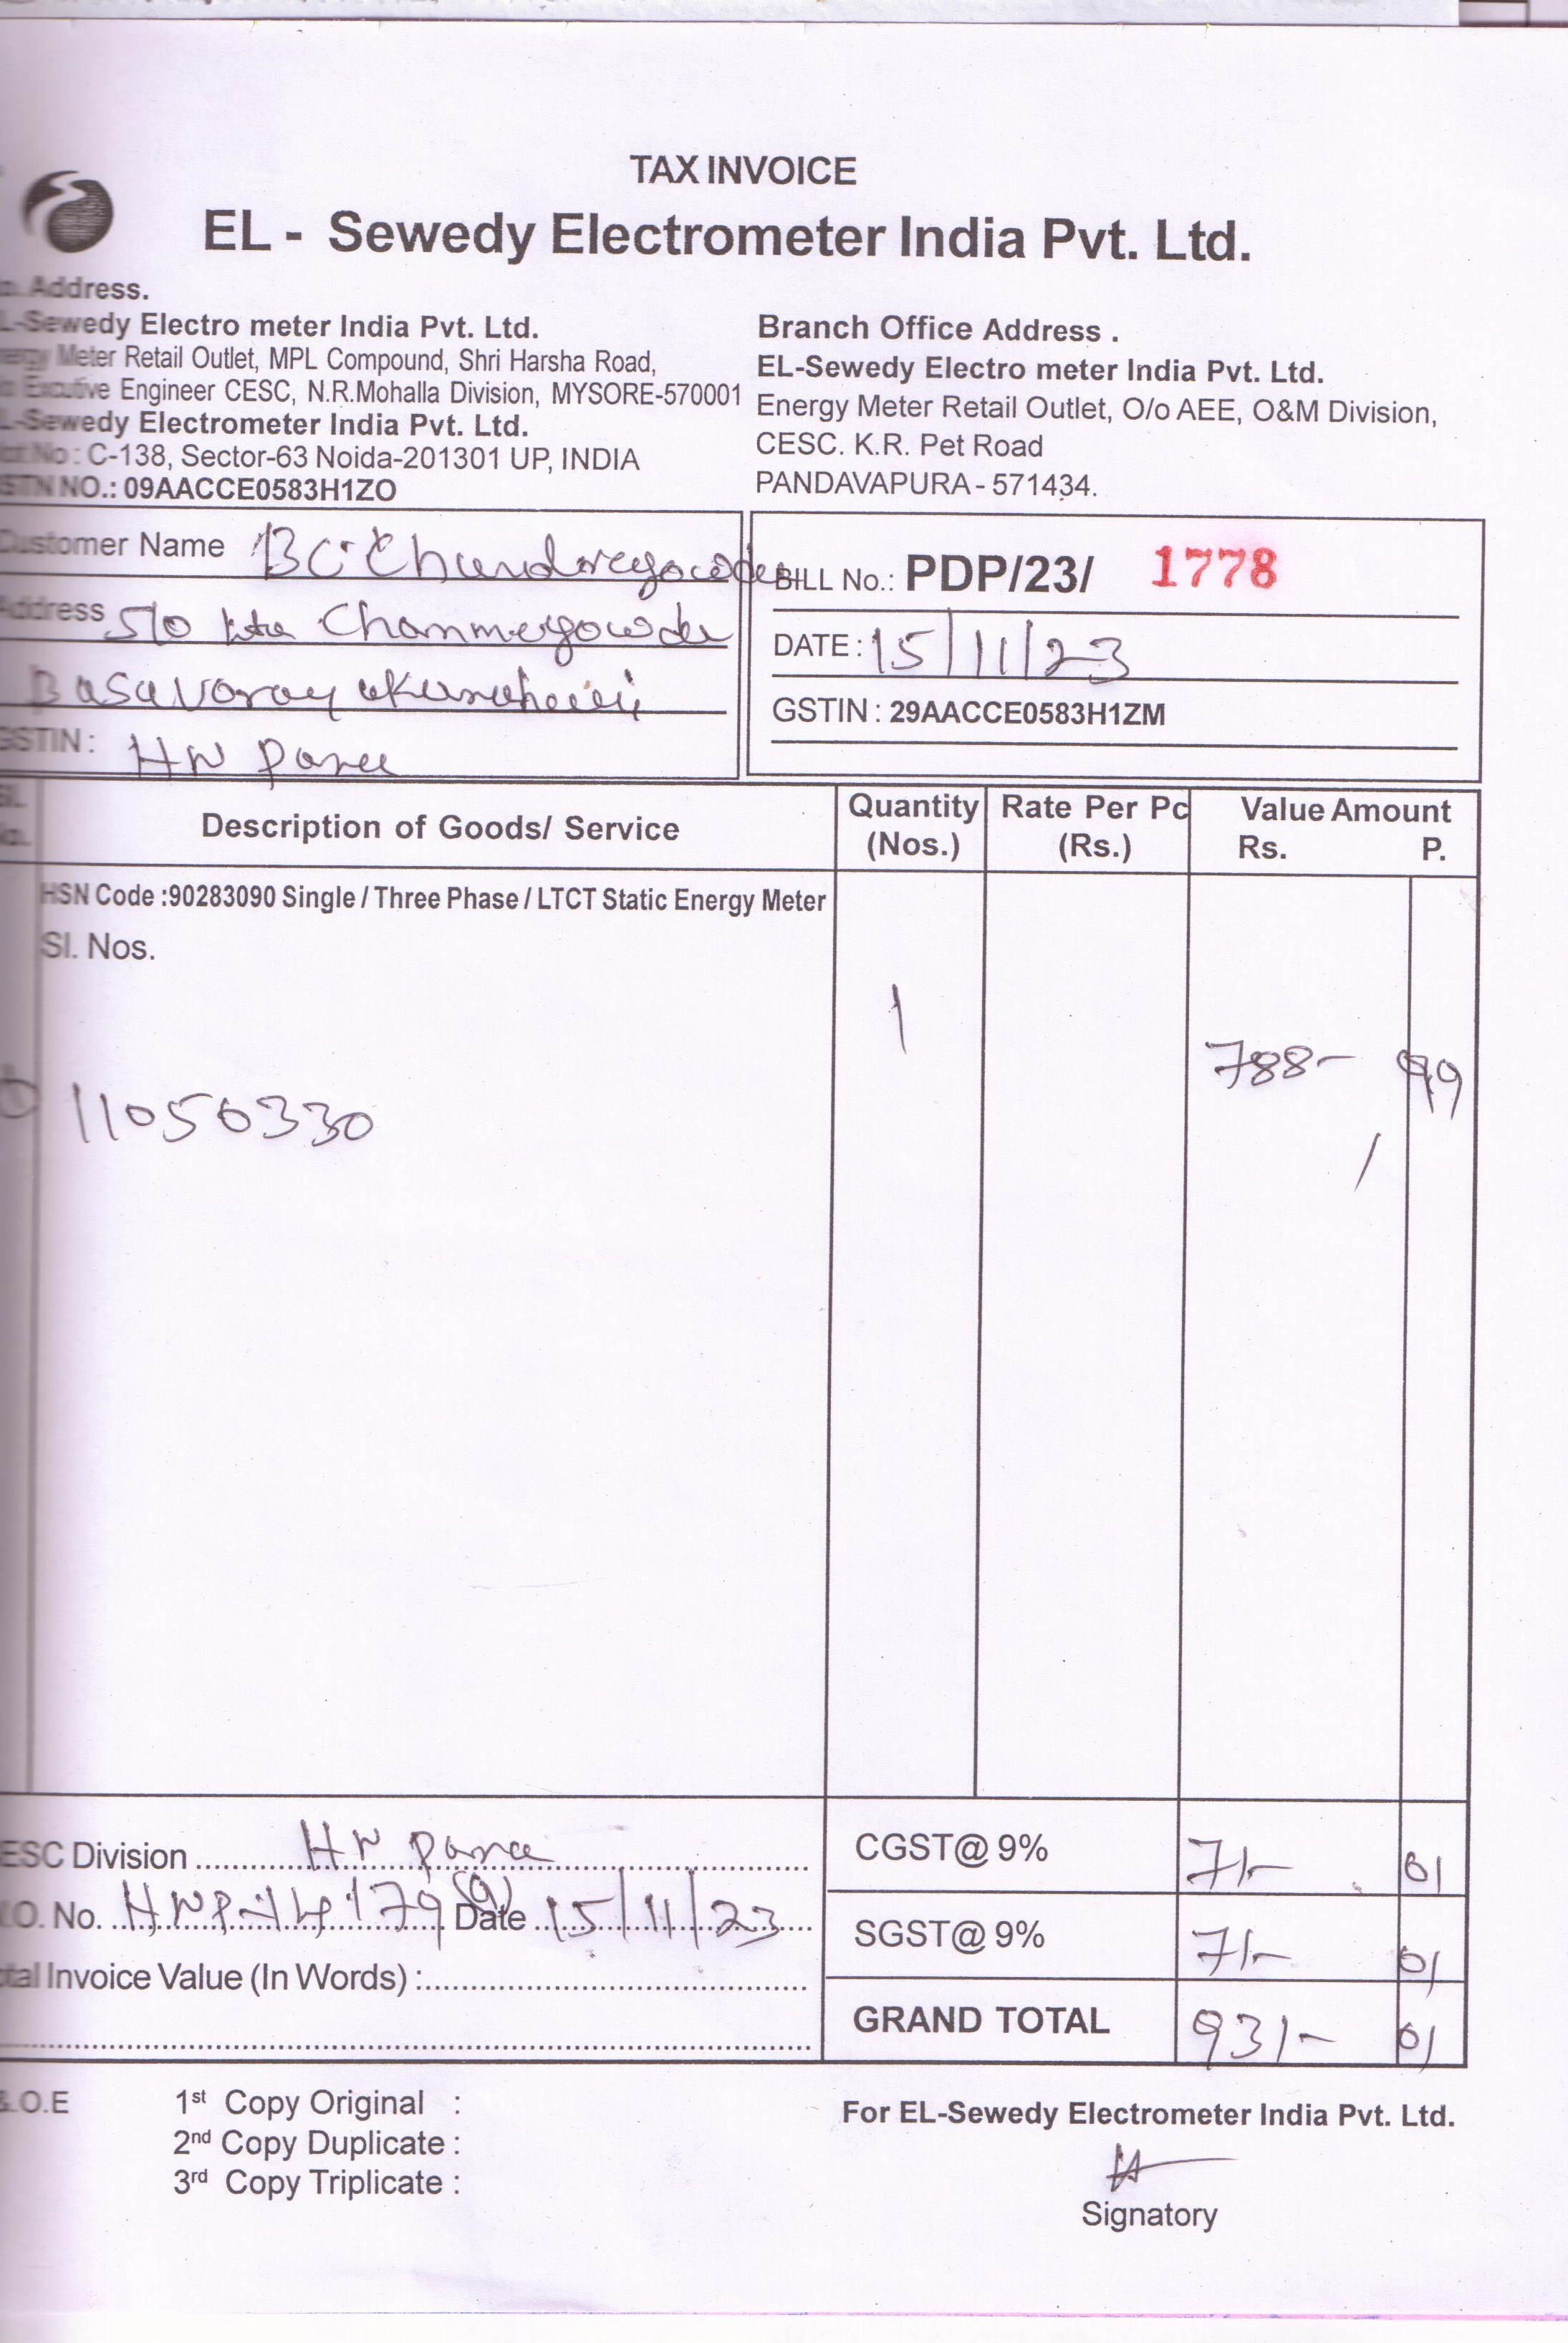 TAX INVOICE
EL - Sewedy Electrometer India Pvt. Ltd.
Address.
L-Sewedy Electro meter India Pvt. Ltd.
Meter Retail Outlet, MPL Compound, Shri Harsha Road,
Excutive Engineer CESC, N.R.Mohalla Division, MYSORE-570001
L-Sewedy Electrometer India Pvt. Ltd.
No : C-138, Sector-63 Noida-201301 UP, INDIA
STN NO.: 09AACCE0583H1ZO
Branch Office Address .
EL-Sewedy Electro meter India Pvt. Ltd.
Energy Meter Retail Outlet, O/o AEE, O&M Division,
CESC. K.R. Pet Road
PANDAVAPURA - 571434.
Customer Name BC Chandregowda
Address S/o late Channegowda
GSTIN : HN Pura
BILL No.: PDP/23/ 1778
DATE : 15/11/23
GSTIN : 29AACCE0583H1ZM
Sl. No. Description of Goods/ Service Quantity (Nos.) Rate Per Pc (Rs.) Value Amount Rs. P.
HSN Code :90283090 Single / Three Phase / LTCT Static Energy Meter
Sl. Nos.
1
788- 99
11050330
ESC Division HN pura
CGST@ 9% 71- 01
.O. No. Date 15/11/23
SGST@ 9% 71- 01
tal Invoice Value (In Words) :
GRAND TOTAL 931- 01
&.O.E
1st Copy Original :
2nd Copy Duplicate :
3rd Copy Triplicate :
For EL-Sewedy Electrometer India Pvt. Ltd.
Signatory